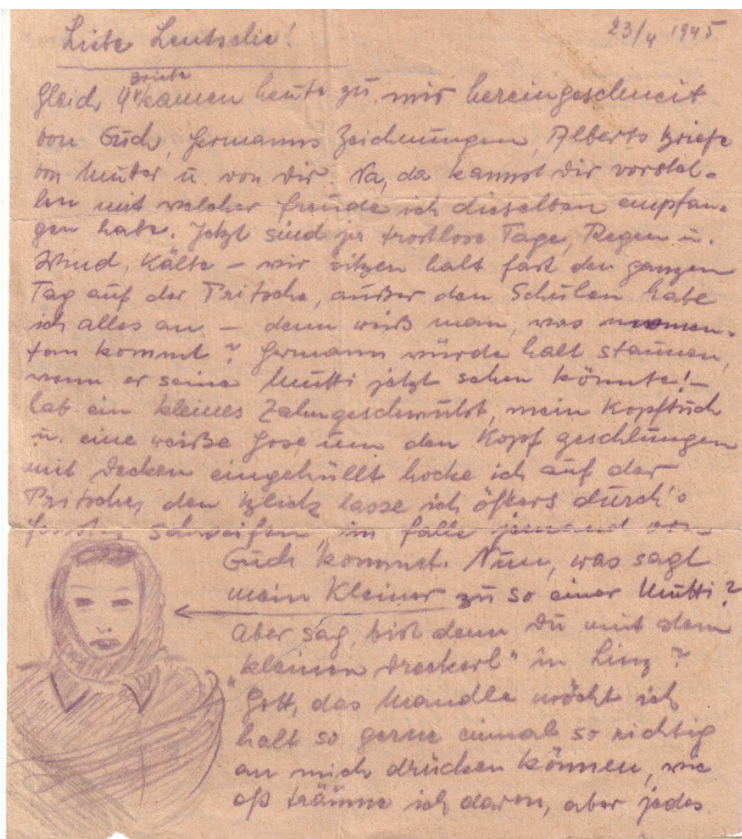 Liebe Leutschie!
23/4 1945
Briefe
Gleich 4 kamen heute zu mir hereingeschneit
von Euch, Hermanns Zeichnungen, Alberts Briefe
von Mutter u. von Dir. Na, da kannst Dir vorstel-
len mit welcher Freude ich dieselben empfan-
gen habe. Jetzt sind ja trostlose Tage, Regen u.
Wind, Kälte – wir sitzen halt fast den ganzen
Tag auf der Pritsche, außer den Schuhen habe
ich alles an – denn weiß man, was momen-
tan kommt? Hermann würde halt staunen,
wenn er seine Mutti jetzt sehen könnte! –
hab ein kleines Zahngeschwürl, mein Kopftuch
u. eine weiße Hose um den Kopf geschlungen
mit Decken eingehüllt hocke ich auf der
Pritsche, den Blick lasse ich öfters durch's
Fenster schweifen, im Falle jemand von
Euch kommt. Nun, was sagt
mein Kleiner zu so einer Mutti?
Aber sag, bist denn Du mit dem
"kleinen Dreckerl" in Linz?
Gott, das Mandle möcht ich
halt so gerne einmal so richtig
an mich drücken können, wie
oft träume ich davon, aber jedes